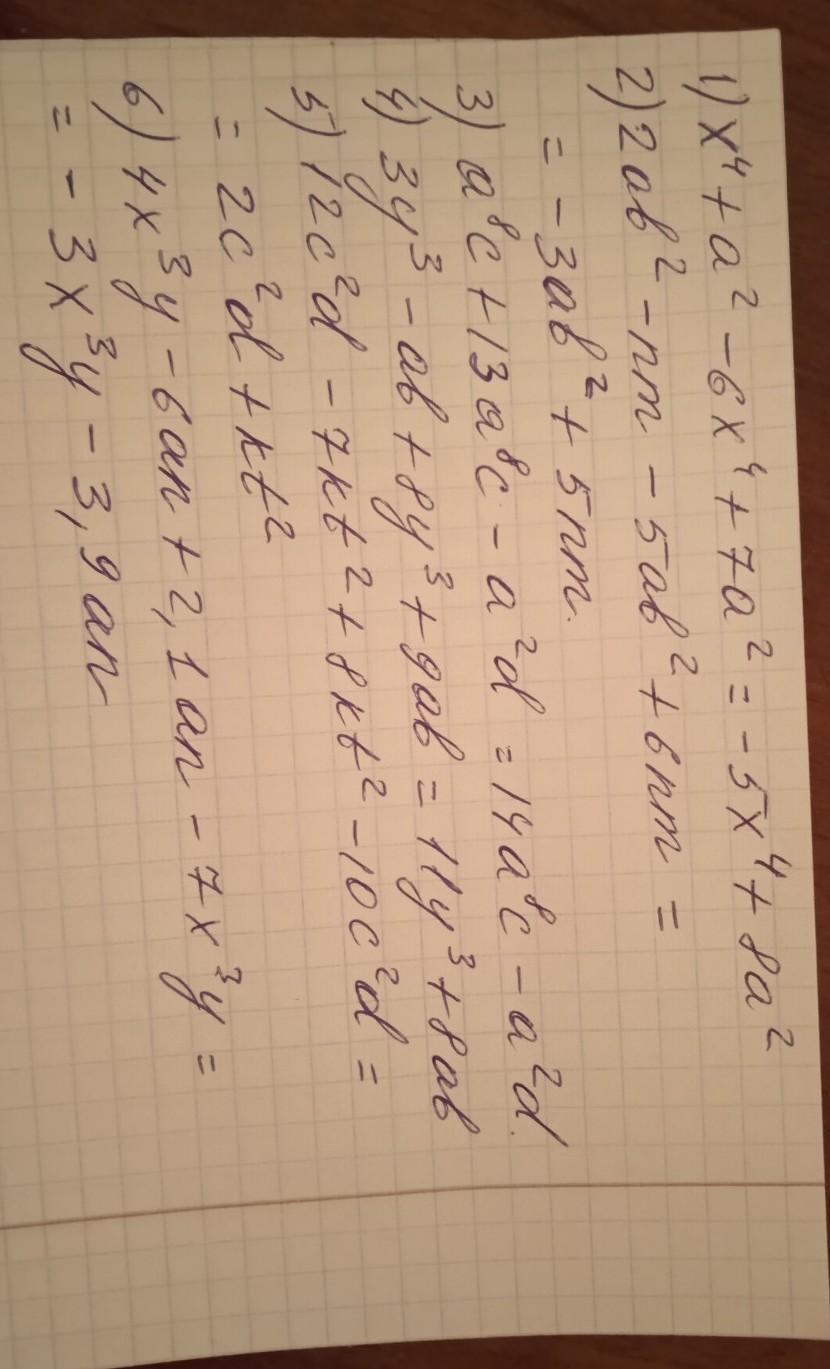 1) x⁴ + a² - 6x⁴ + 7a² = - 5x⁴ + 8a²
2) 2ab² - nm - 5ab² + 6nm =
= - 3ab² + 5nm.
3) a⁸c + 13a⁸c - a²d = 14a⁸c - a²d.
4) 3y³ - ab + 8y³ + 9ab = 11y³ + 8ab
5) 12c²d - 7kt² + 8kt² - 10c²d =
= 2c²d + kt²
6) 4x³y - 6an + 2,1an - 7x³y =
= - 3x³y - 3,9an